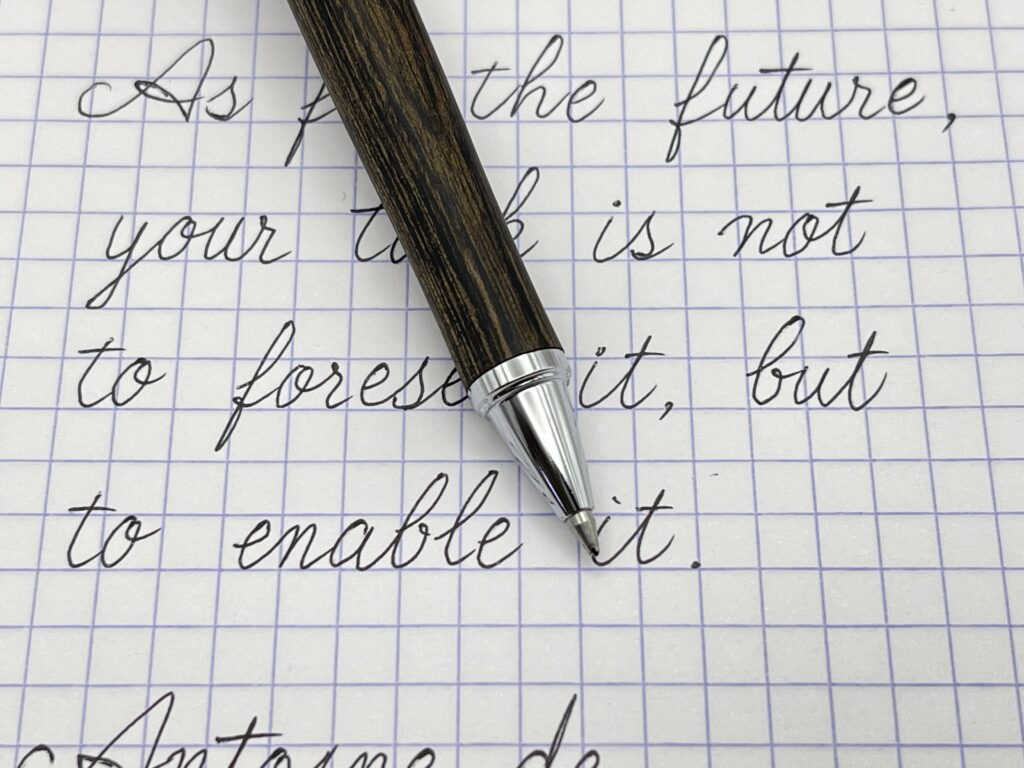 As the future,
your is not
to foresee it, but
to enable it.
Antoine de